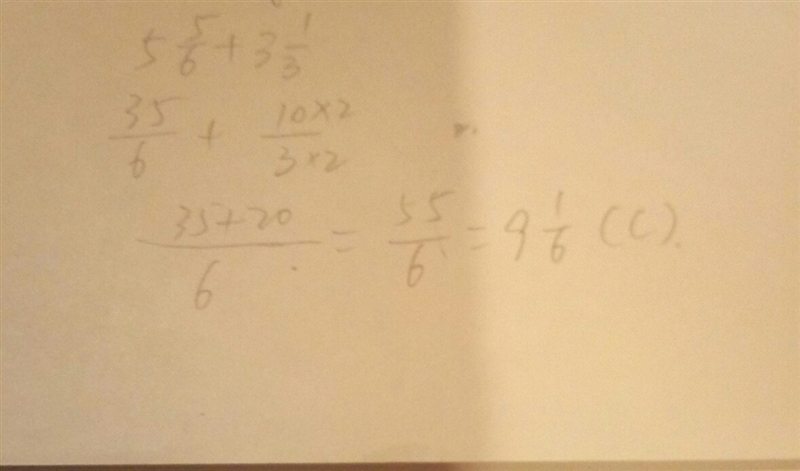 5 5/6 + 3 1/3
35/6 + 10×2/3×2
35+20/6 = 55/6 = 9 1/6 (C).